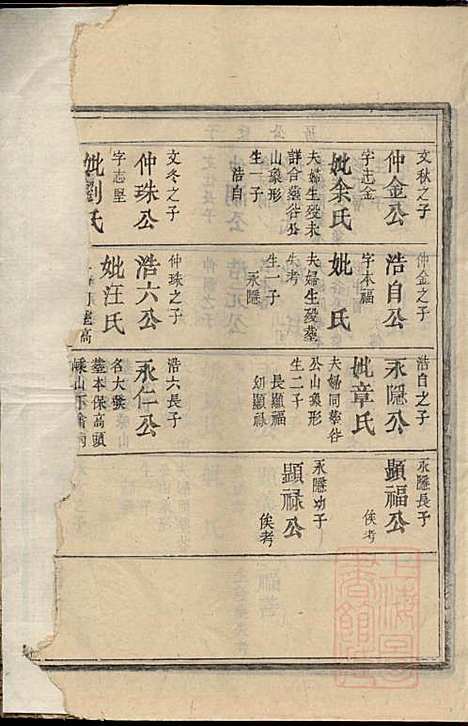 文秋之子
仲金公
字志金
妣余氏
夫婦生殁未
詳合墓谷公
山象形
生一子
浩自
文冬之子
仲珠公
字志堅
妣劉氏
仲金之子
浩自公
字木福
妣 氏
夫婦生殁墓
失考
生一子
永隱
仲珠之子
浩六公
妣汪氏
浩自之子
永隱公
妣章氏
夫婦同墓谷
公山象形
生二子
長顯福
幼顯祿
浩六長子
永仁公
名大
墓本保高頭
永隱長子
顯福公
俟考
永隱幼子
顯祿公
俟考
上海圖書館藏